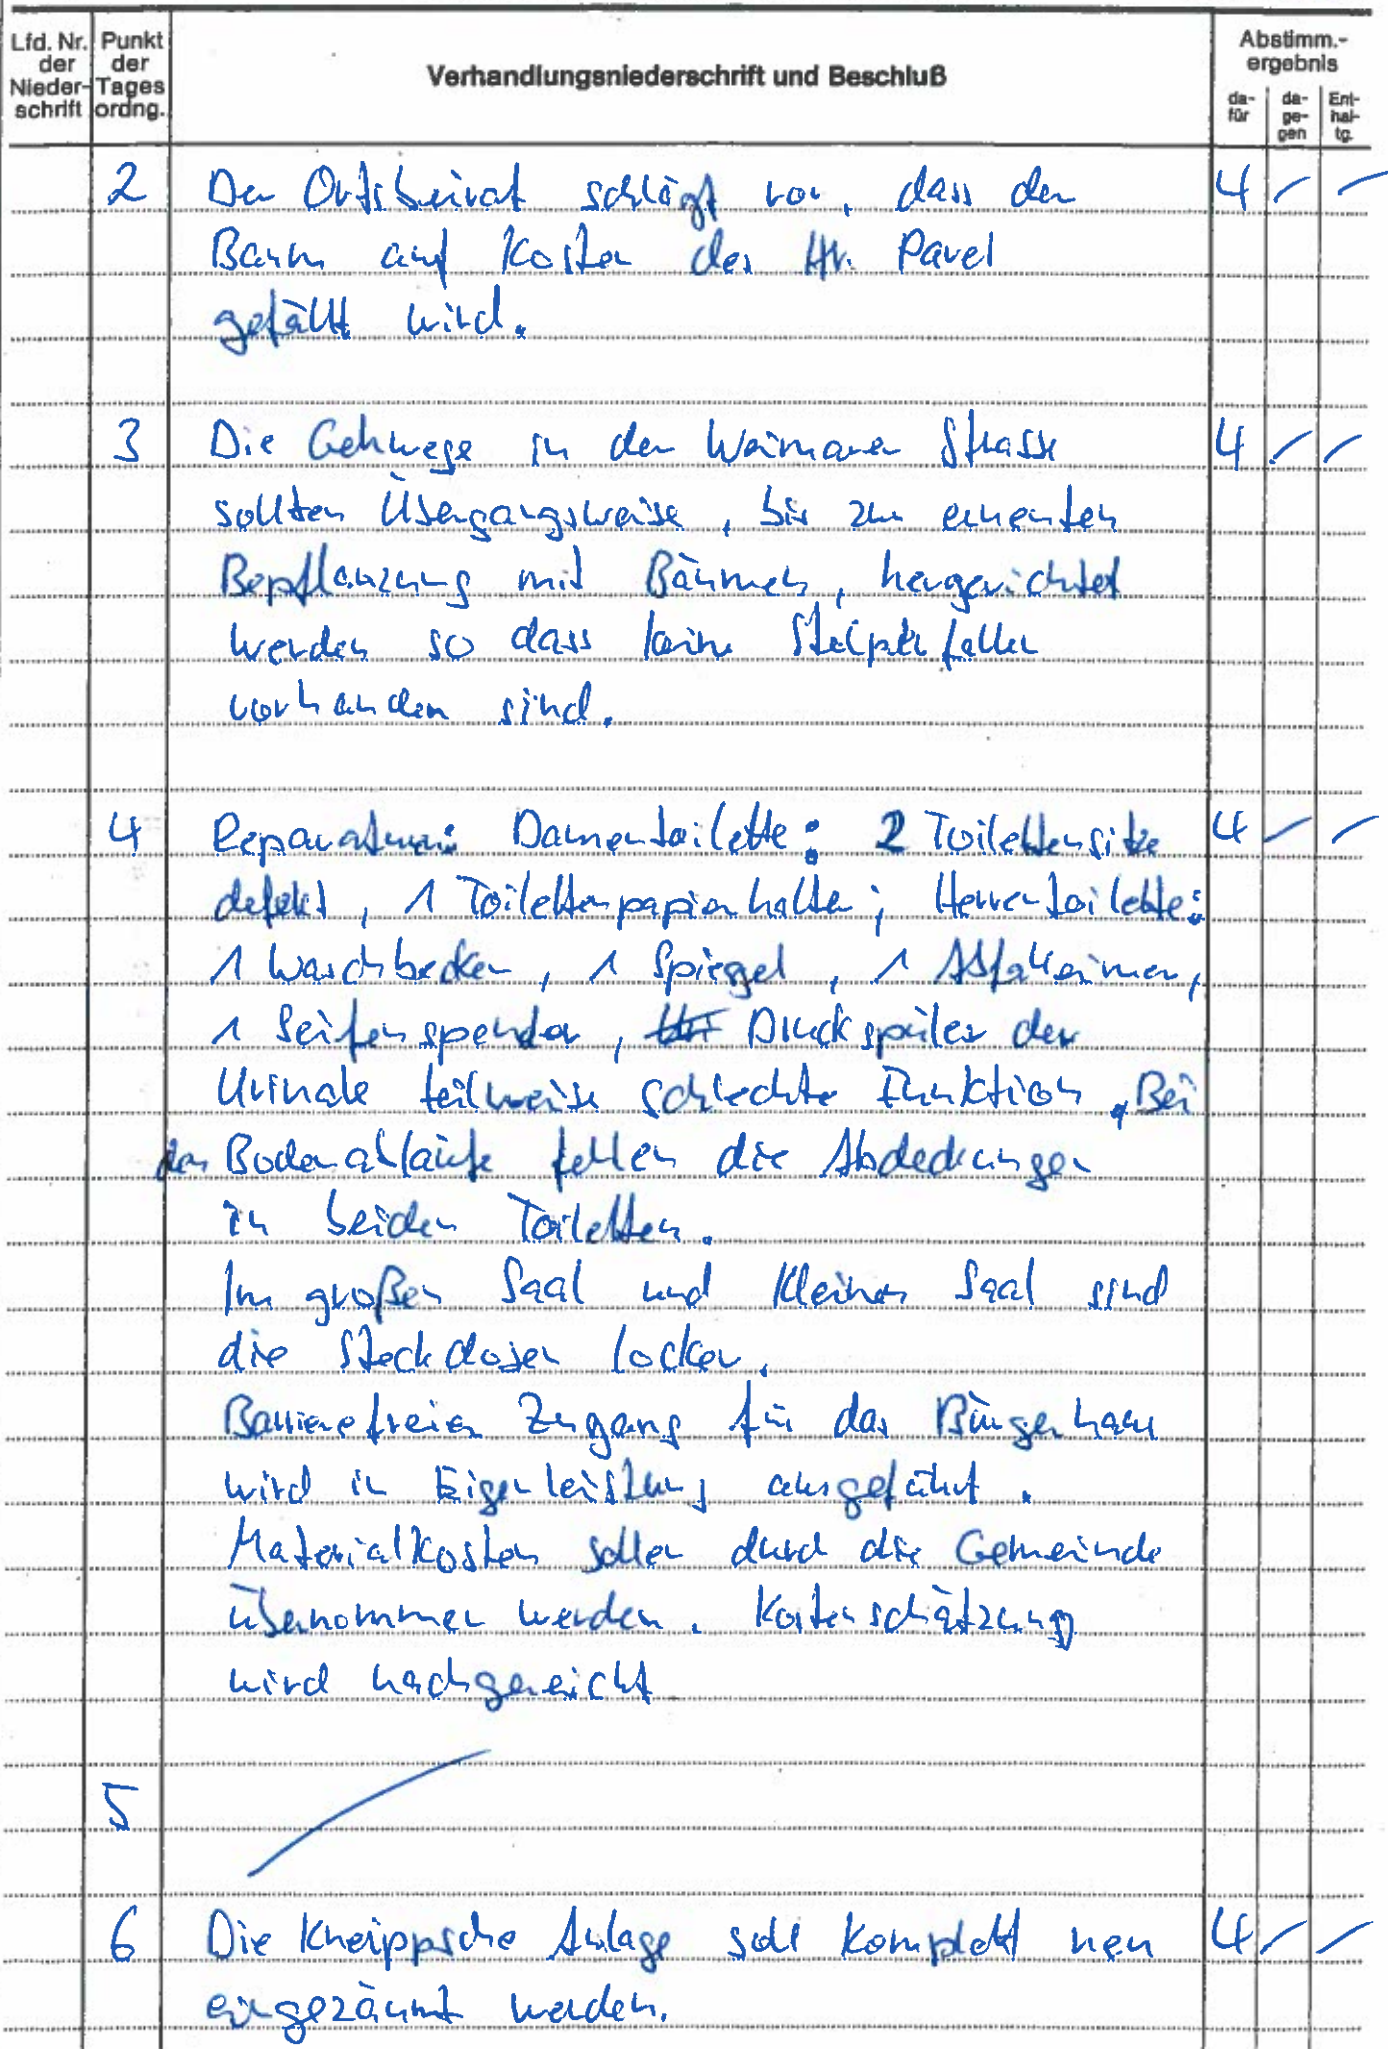 Lfd. Nr. der Nieder- schrift
Punkt der Tages ordng.
Verhandlungsniederschrift und Beschluß
Abstimm.- ergebnis
da- für
da- ge- gen
Ent- hal- tg.
2 Der Ortsbeirat schlägt vor, dass der 4 / /
Baum auf Kosten des Hr. Pavel
gefällt wird.
3 Die Gehwege in der Weimarer Strasse 4 / /
sollten Übergangsweise, bis zur erneuten
Bepflanzung mit Bäumen, hergerichtet
werden so dass keine Stolperfallen
vorhanden sind.
4 Reparaturen: Damentoilette: 2 Toilettensitze 4 / /
defekt, 1 Toilettenpapierhalter; Herrentoilette:
1 Waschbecken, 1 Spiegel, 1 Abfalleimer,
1 Seifenspender, Druckspüler der
Urinale teilweise schlechte Funktion. Bei
den Bodenabläufe fehlen die Abdeckungen
in beiden Toiletten.
Im großen Saal und kleinen Saal sind
die Steckdosen locker.
Barrierefreier Zugang für das Bürgerhaus
wird in Eigenleistung ausgeführt.
Materialkosten sollen durch die Gemeinde
übernommen werden. Kostenschätzung
wird nachgereicht
5 /
6 Die Kneippsche Anlage soll komplett neu 4 / /
eingezäunt werden.